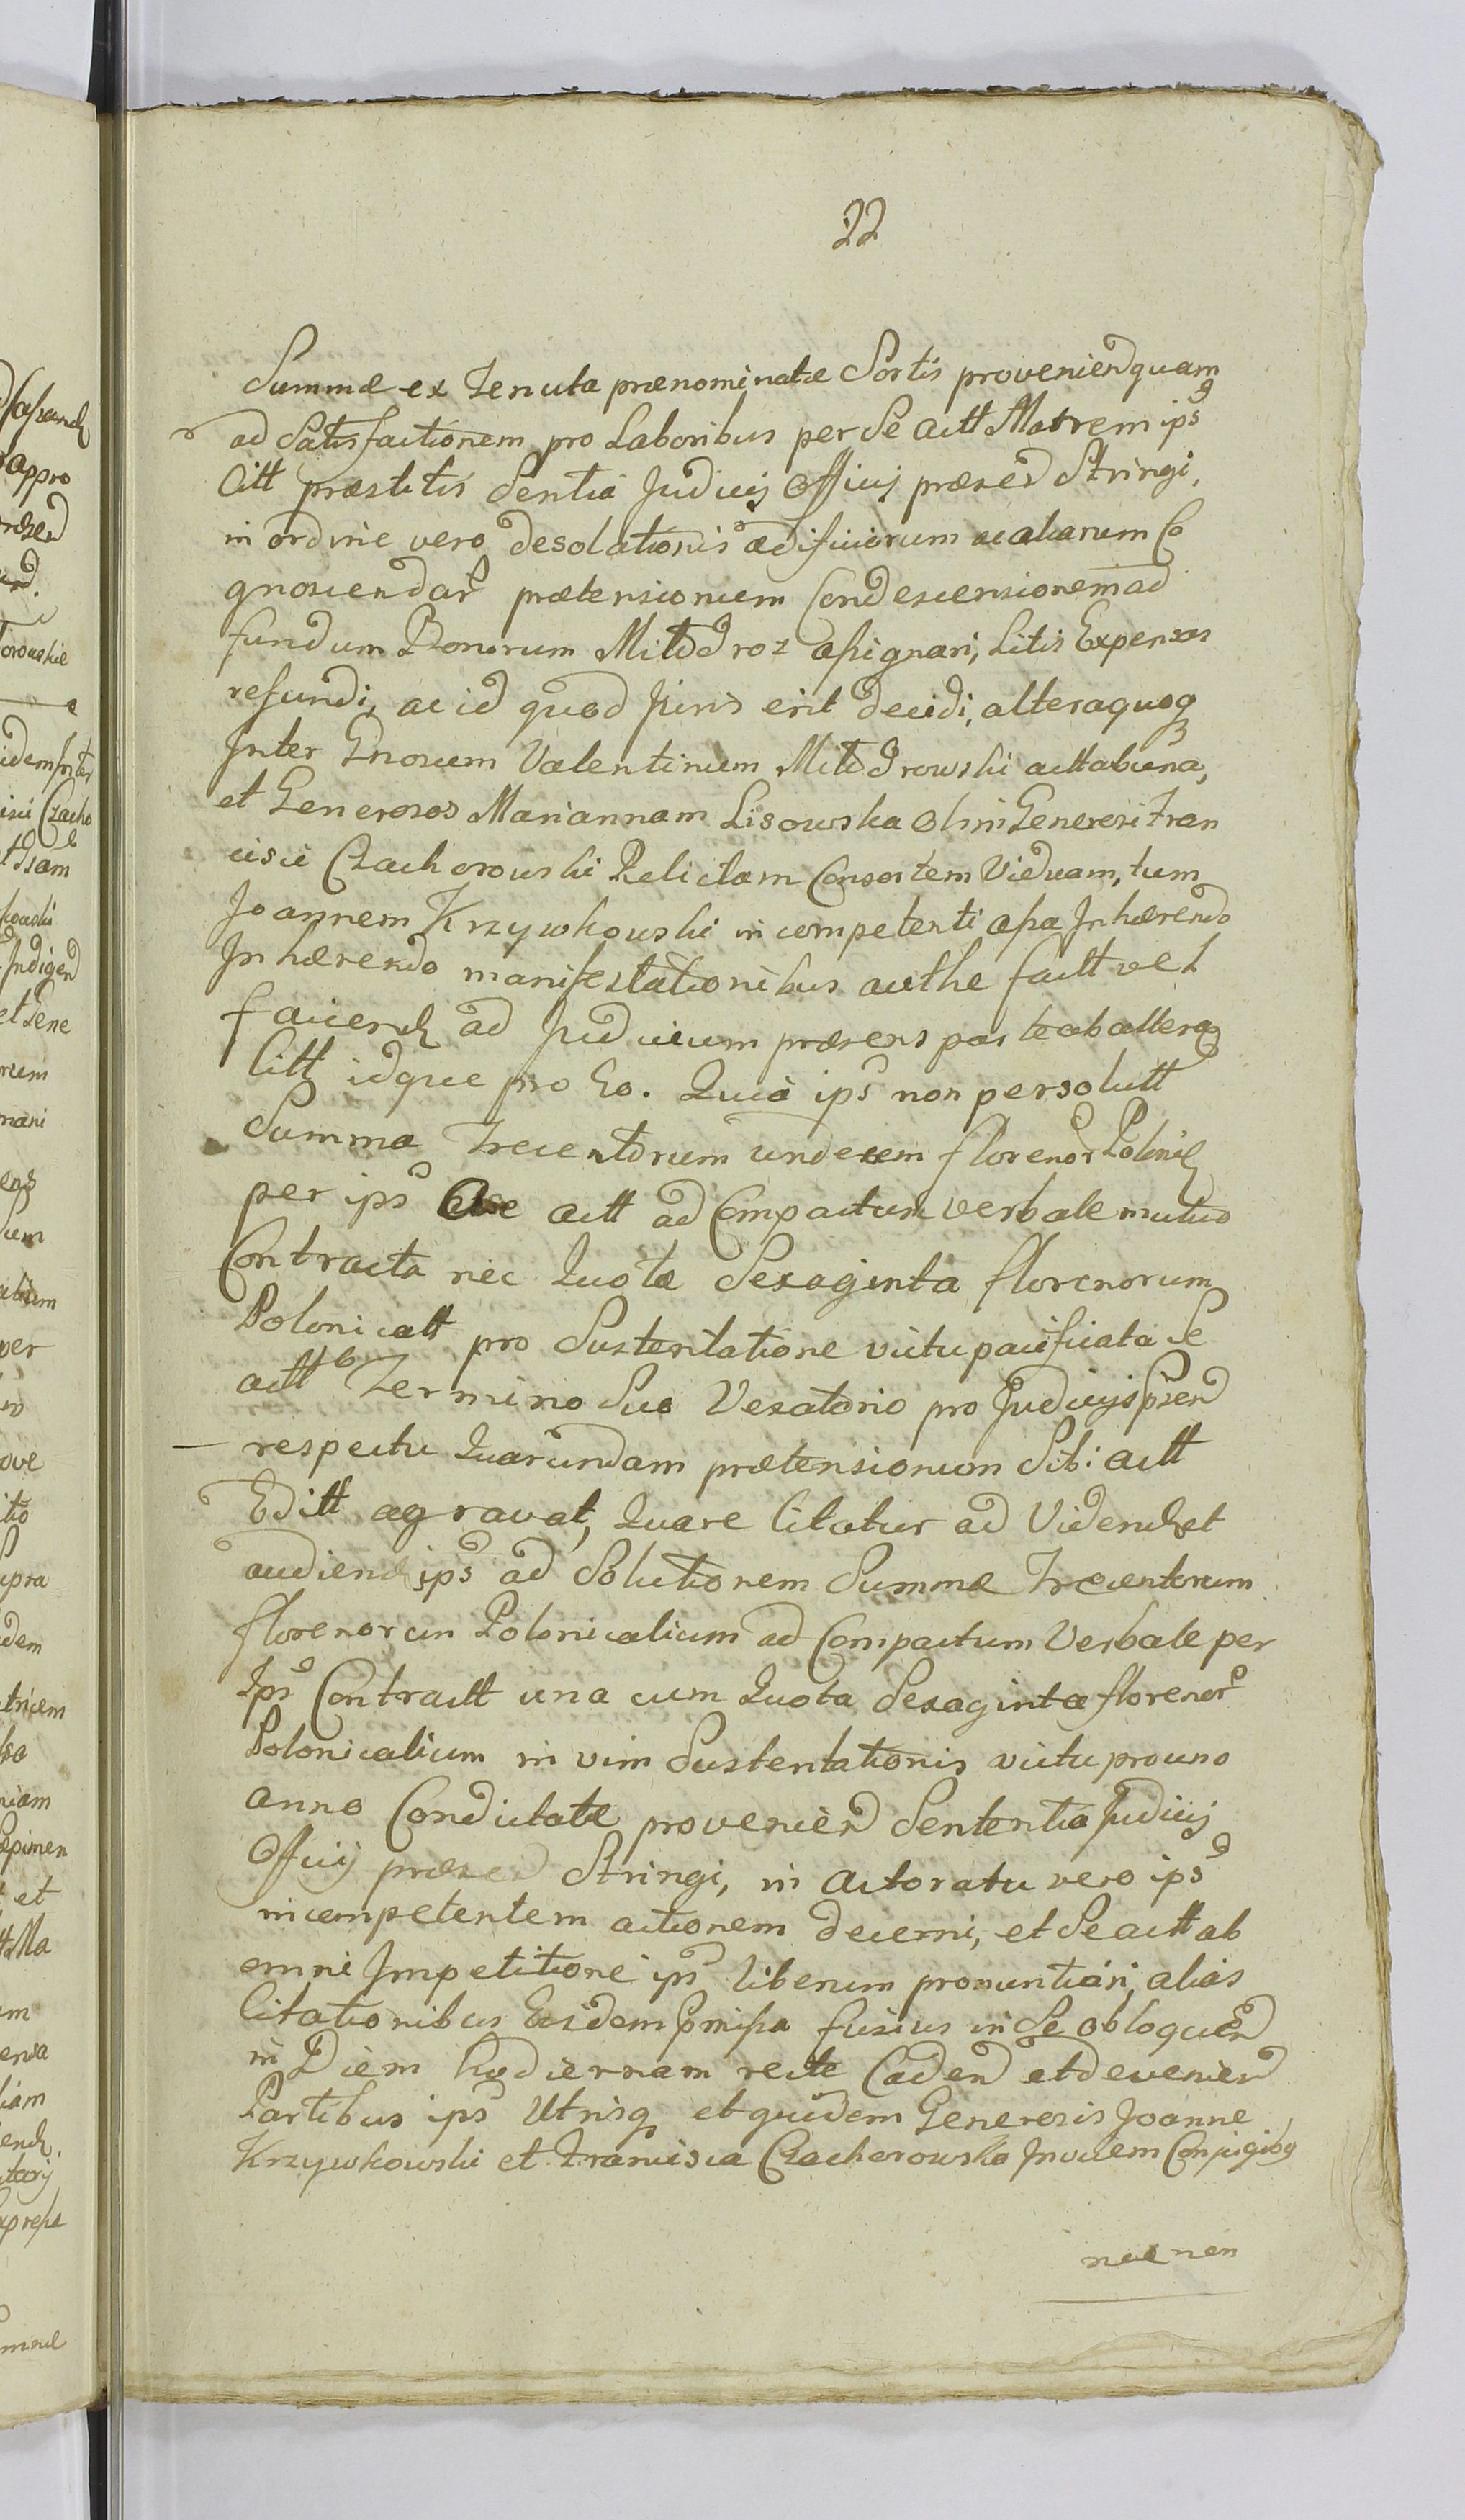 22
Summæ ex Tenuta prænominatæ Sortis proveniend quam
ad Satisfactionem pro Laboribus per Se actt Matrem ips
Citt præstitis Sentia Judicij Officij præsed Stringi,
in ordine vero desolationis ædificiorum ac aliarum Co
gnoscendar prætensionum Condescensionem ad
fundum Bonorum Mitt Droz assignari, Litis Expensas
refundi, ac id quod Juris erit decidi, alteraquoq
Inter Gnosum Valentinum Mittdrowski actt abiena,
et Generosos Mariannam Lisowska Olim Generosi Fran
cisci Czachorowski Relictam Consortem Viduam, tum
Joannem Krzywkowski in competenti assa Inhærendo
Inhærendo manifestationibus authe factt vel
faciend ad Judicium præsens parte ab altera
Citt idque pro Eo. Quia ips non persolutt
Summa Trecentorum undecem florenor Polonic
per ips a Se actt ad Compactum verbale mutuo
Contracta nec Quota Sexaginta florenorum
Polonicatt pro Sustentatione victu pacificata Se
actt Termino Suo Vexatorio pro Judicijs psend
respectu Quarundam prætensionum Sibi actt
Editt agravat, Quare Citatur ad Videnduet
audiend ips ad Solutionem Summæ Trecentorum
florenorum Polonicalium ad Compactum Verbale per
Ips Contractt una cum Quota Sexaginta florenor
Polonicalium in vim Sustentationis victu pro uno
anno Condictate proveniend Sententia Judicij
Officij præsed Stringi, in actoratu vero ips
incompetentem actionem decerni, et Se actt ab
omni Impetitione ips liberum pronuntiari, alias
Citationibus Eisdem fusius in Se obloquend
in Diem hodiernam recte Caden et devenien
Partibus ips Utrisq et quidem Generosis Joanne
Krzywkowski et Francisca Czachorowska Invicem Conjugibq
nec non